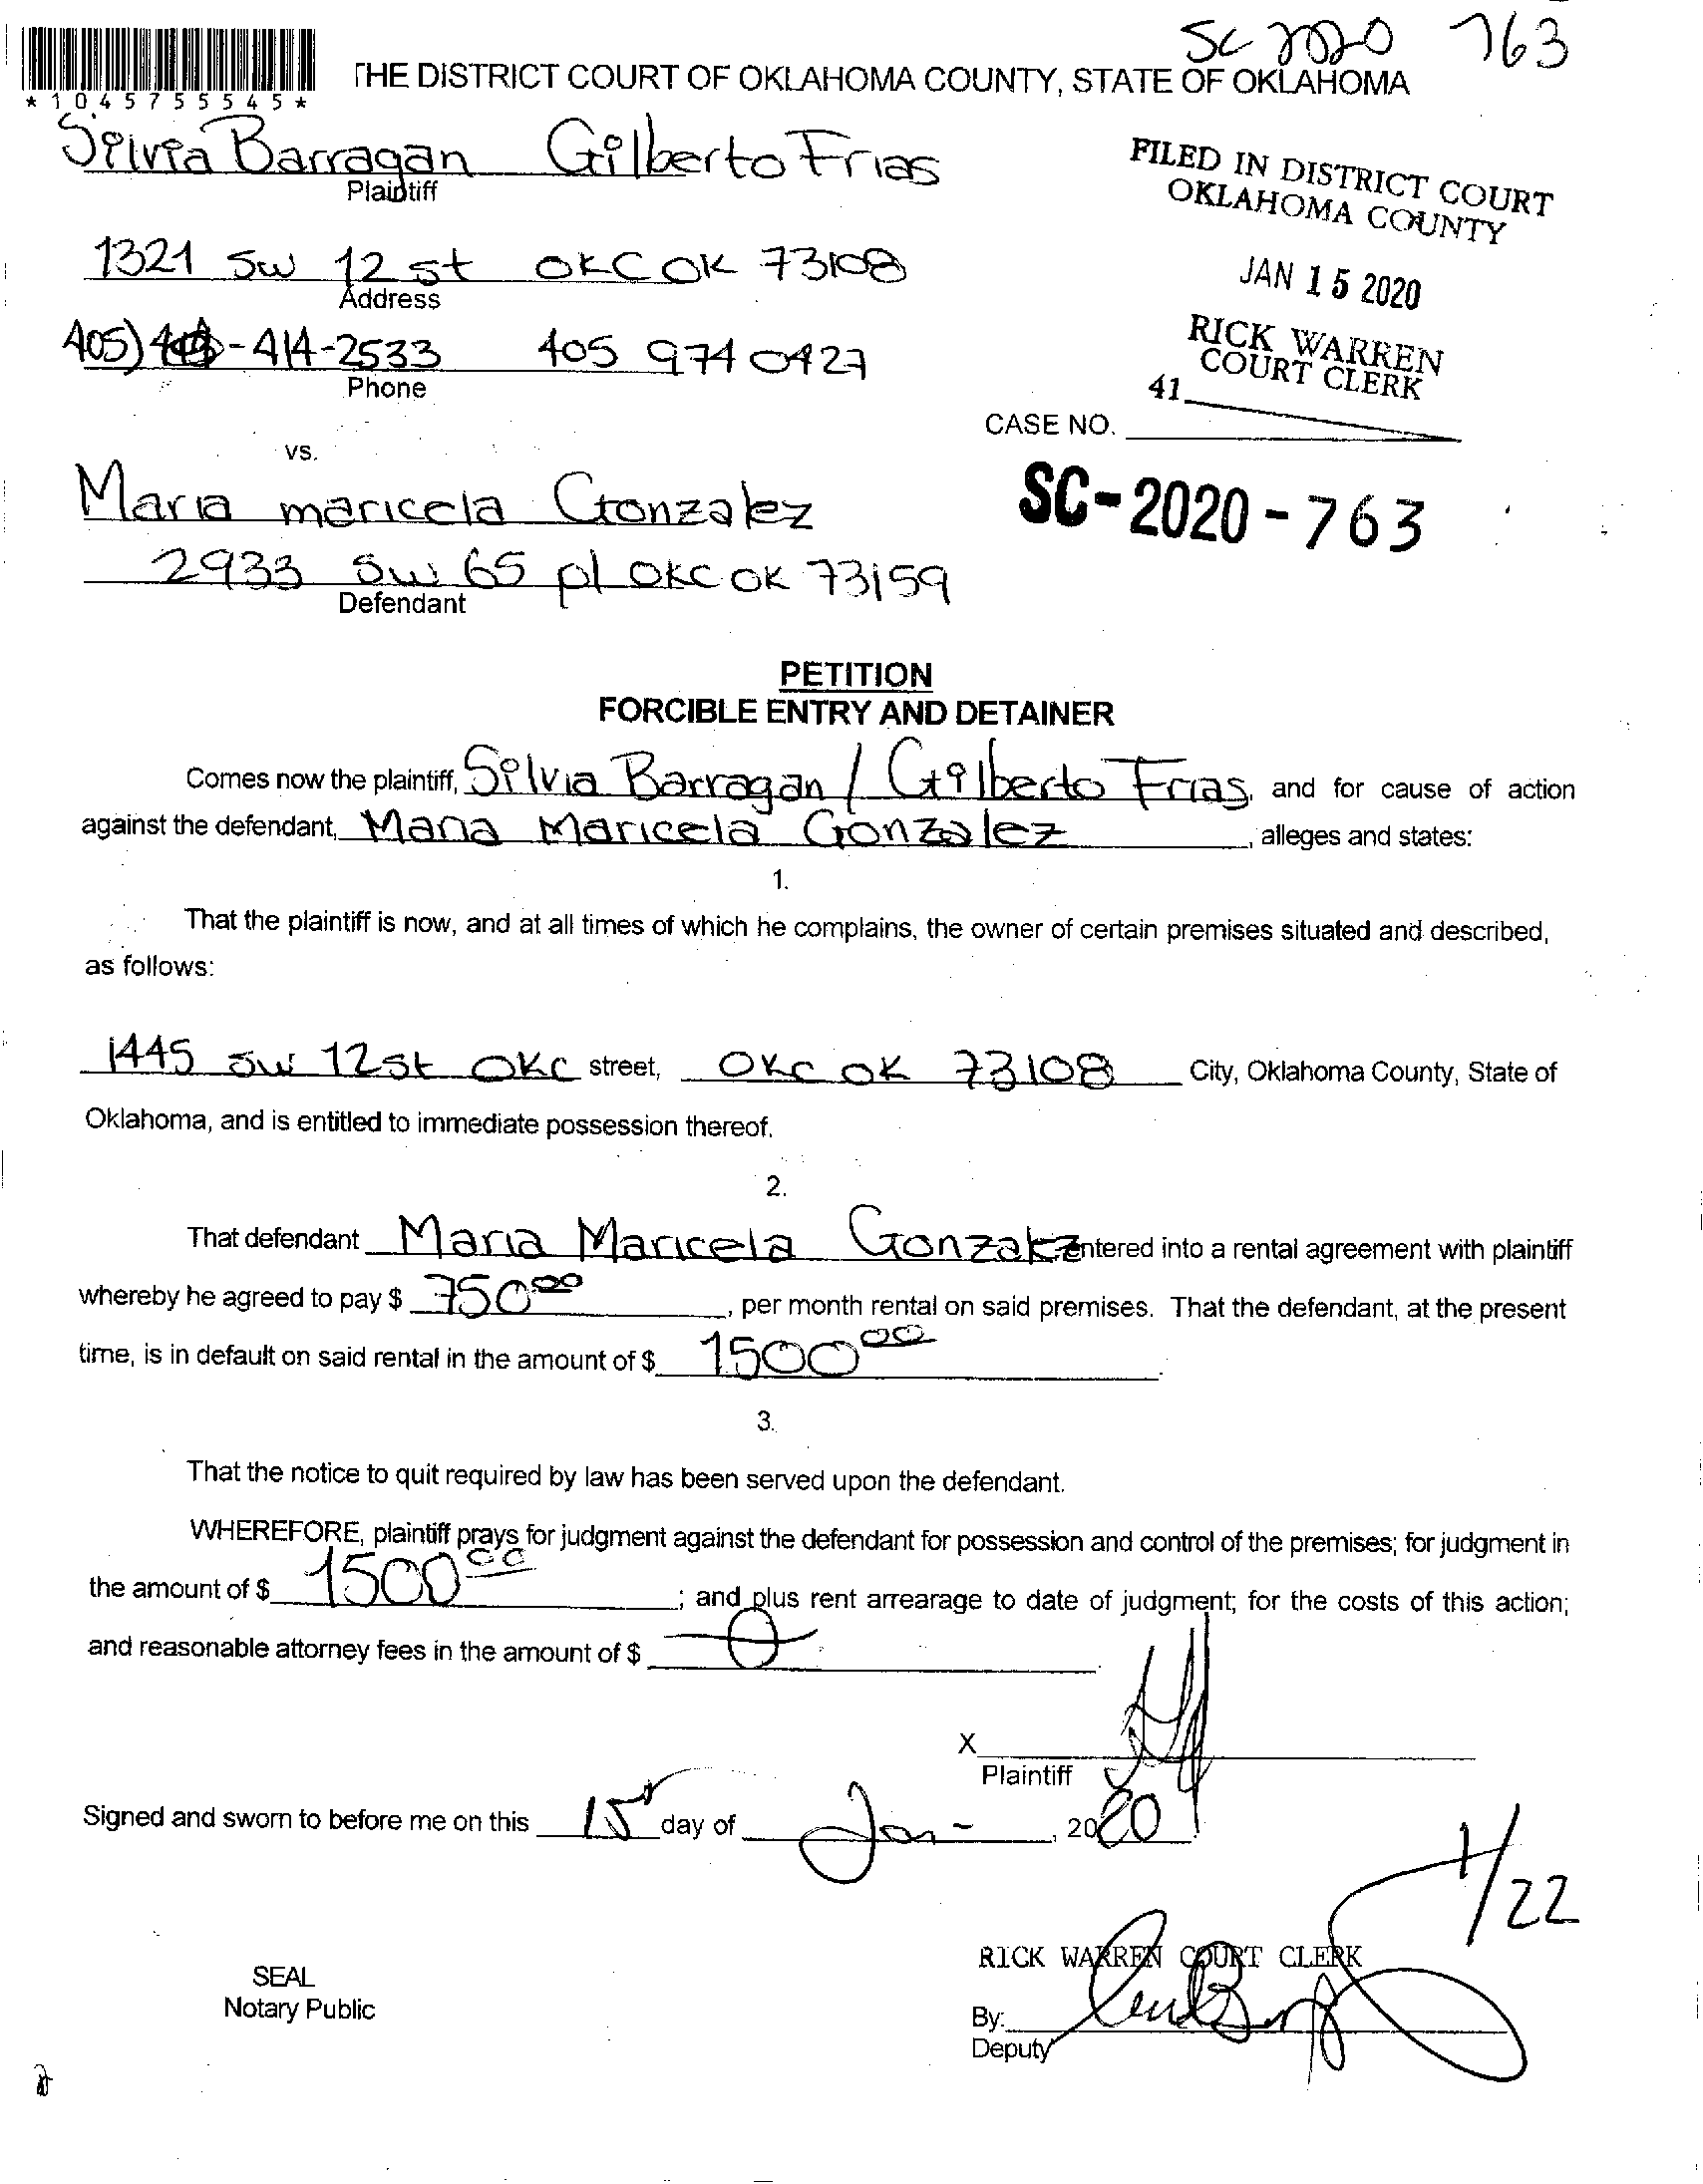 SC 2020 763
*1045755545*
THE DISTRICT COURT OF OKLAHOMA COUNTY, STATE OF OKLAHOMA
Silvia Barragan Gilberto Frias
Plaintiff
FILED IN DISTRICT COURT
OKLAHOMA COUNTY
1321 SW 12 st OKC OK 73108
Address
JAN 15 2020
405) -414-2533 405 974 0427
Phone
RICK WARREN
COURT CLERK
41
CASE NO.
vs.
Maria maricela Gonzalez
SC-2020-763
2933 SW 65 pl OKC OK 73159
Defendant
PETITION
FORCIBLE ENTRY AND DETAINER
Comes now the plaintiff, Silvia Barragan / Gilberto Frias, and for cause of action
against the defendant, Maria Maricela Gonzalez, alleges and states:
1.
That the plaintiff is now, and at all times of which he complains, the owner of certain premises situated and described,
as follows:
1445 SW 12 st OKC street, OKC OK 73108 City, Oklahoma County, State of
Oklahoma, and is entitled to immediate possession thereof.
2.
That defendant Maria Maricela Gonzalez entered into a rental agreement with plaintiff
whereby he agreed to pay $ 750 00, per month rental on said premises. That the defendant, at the present
time, is in default on said rental in the amount of $ 1500 00.
3.
That the notice to quit required by law has been served upon the defendant.
WHEREFORE, plaintiff prays for judgment against the defendant for possession and control of the premises; for judgment in
the amount of $ 1500 00; and plus rent arrearage to date of judgment; for the costs of this action;
and reasonable attorney fees in the amount of $ 0.
X
Plaintiff
Signed and sworn to before me on this 15 day of Jan, 2020
1/22
RICK WARREN COURT CLERK
SEAL
Notary Public
By:
Deputy